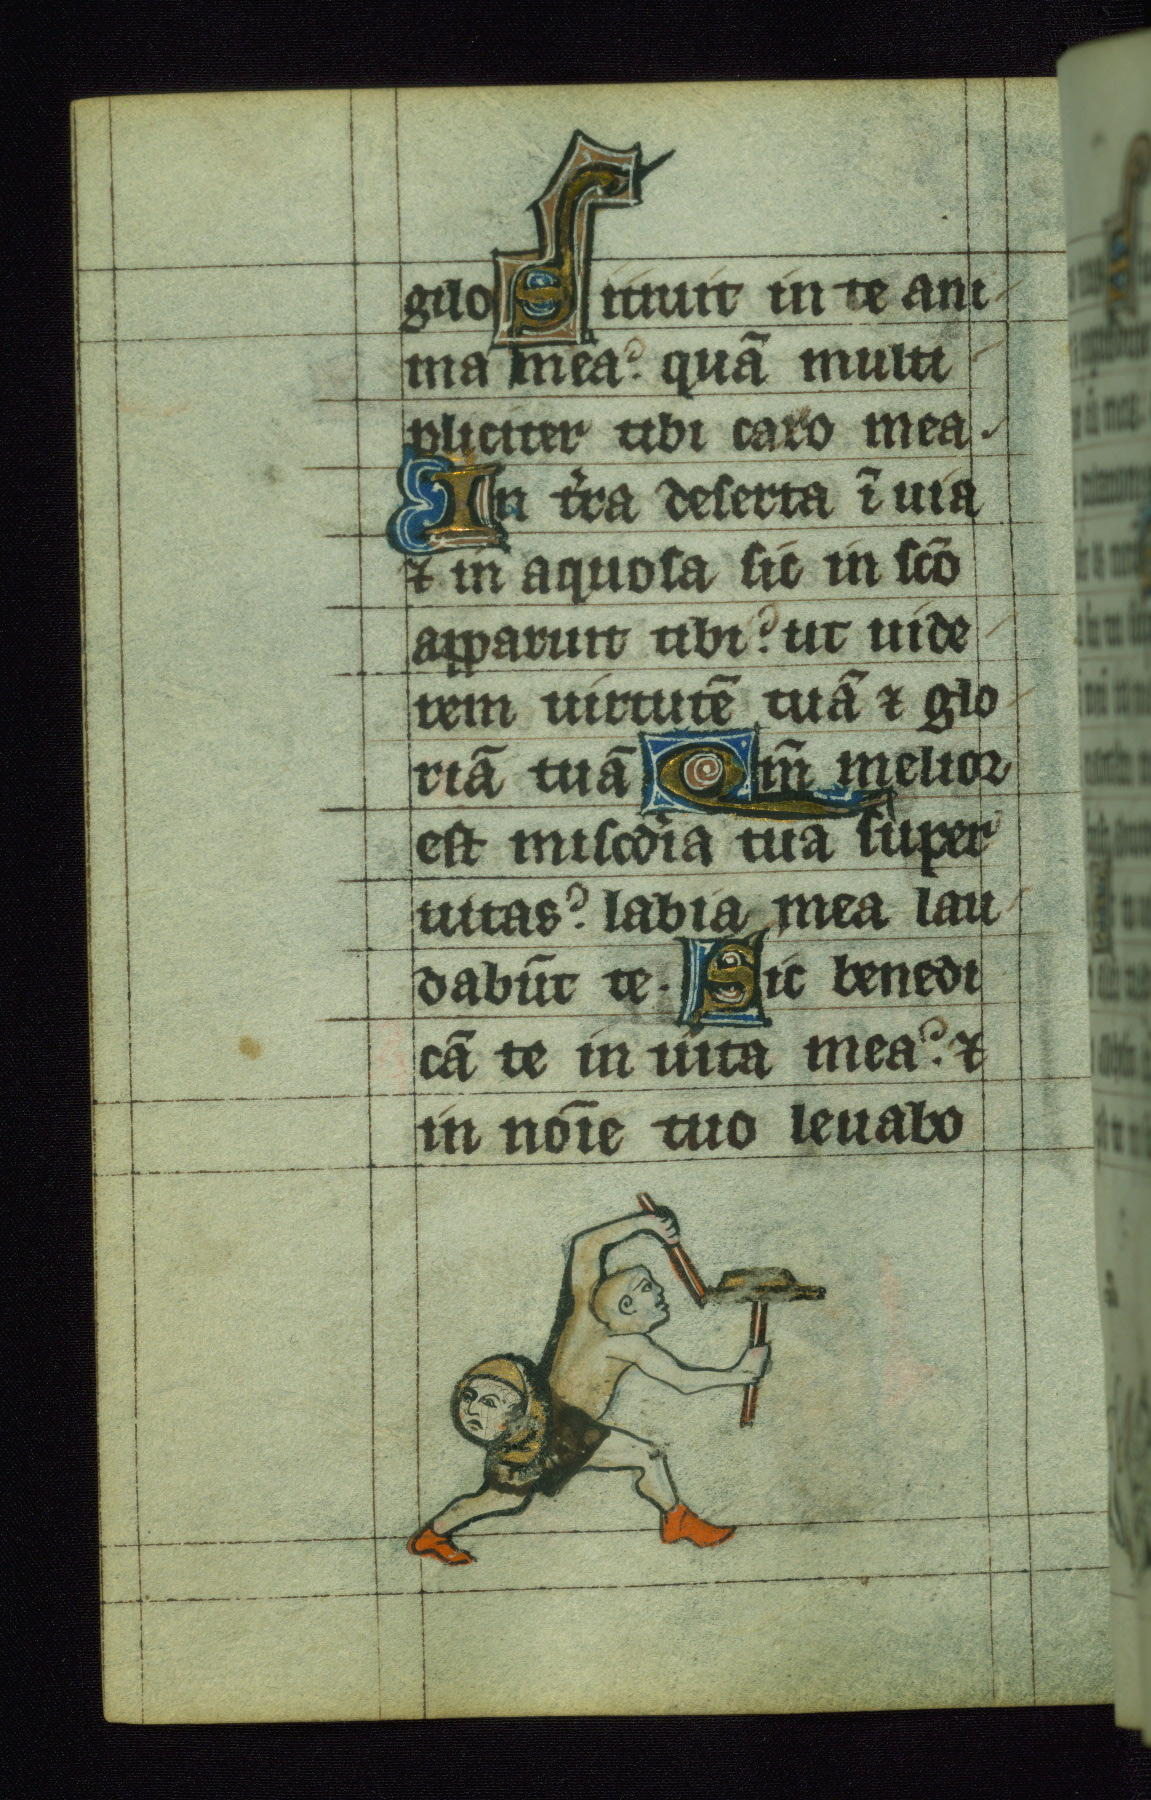 gilo Sitiuit in te ani
ma mea? quā multi
pliciter tibi caro mea.
In t̄ra deserta ī uia
⁊ in aquosa sic in scō
apparuit tibi? ut uide
rem uirtutē tuā ⁊ glo
riā tuā Qm̄ melior
est misc̄dia tua super
uitas? labia mea lau
dabūt te. Sic benedi
cā te in uita mea? ⁊
in noīe tuo leuabo